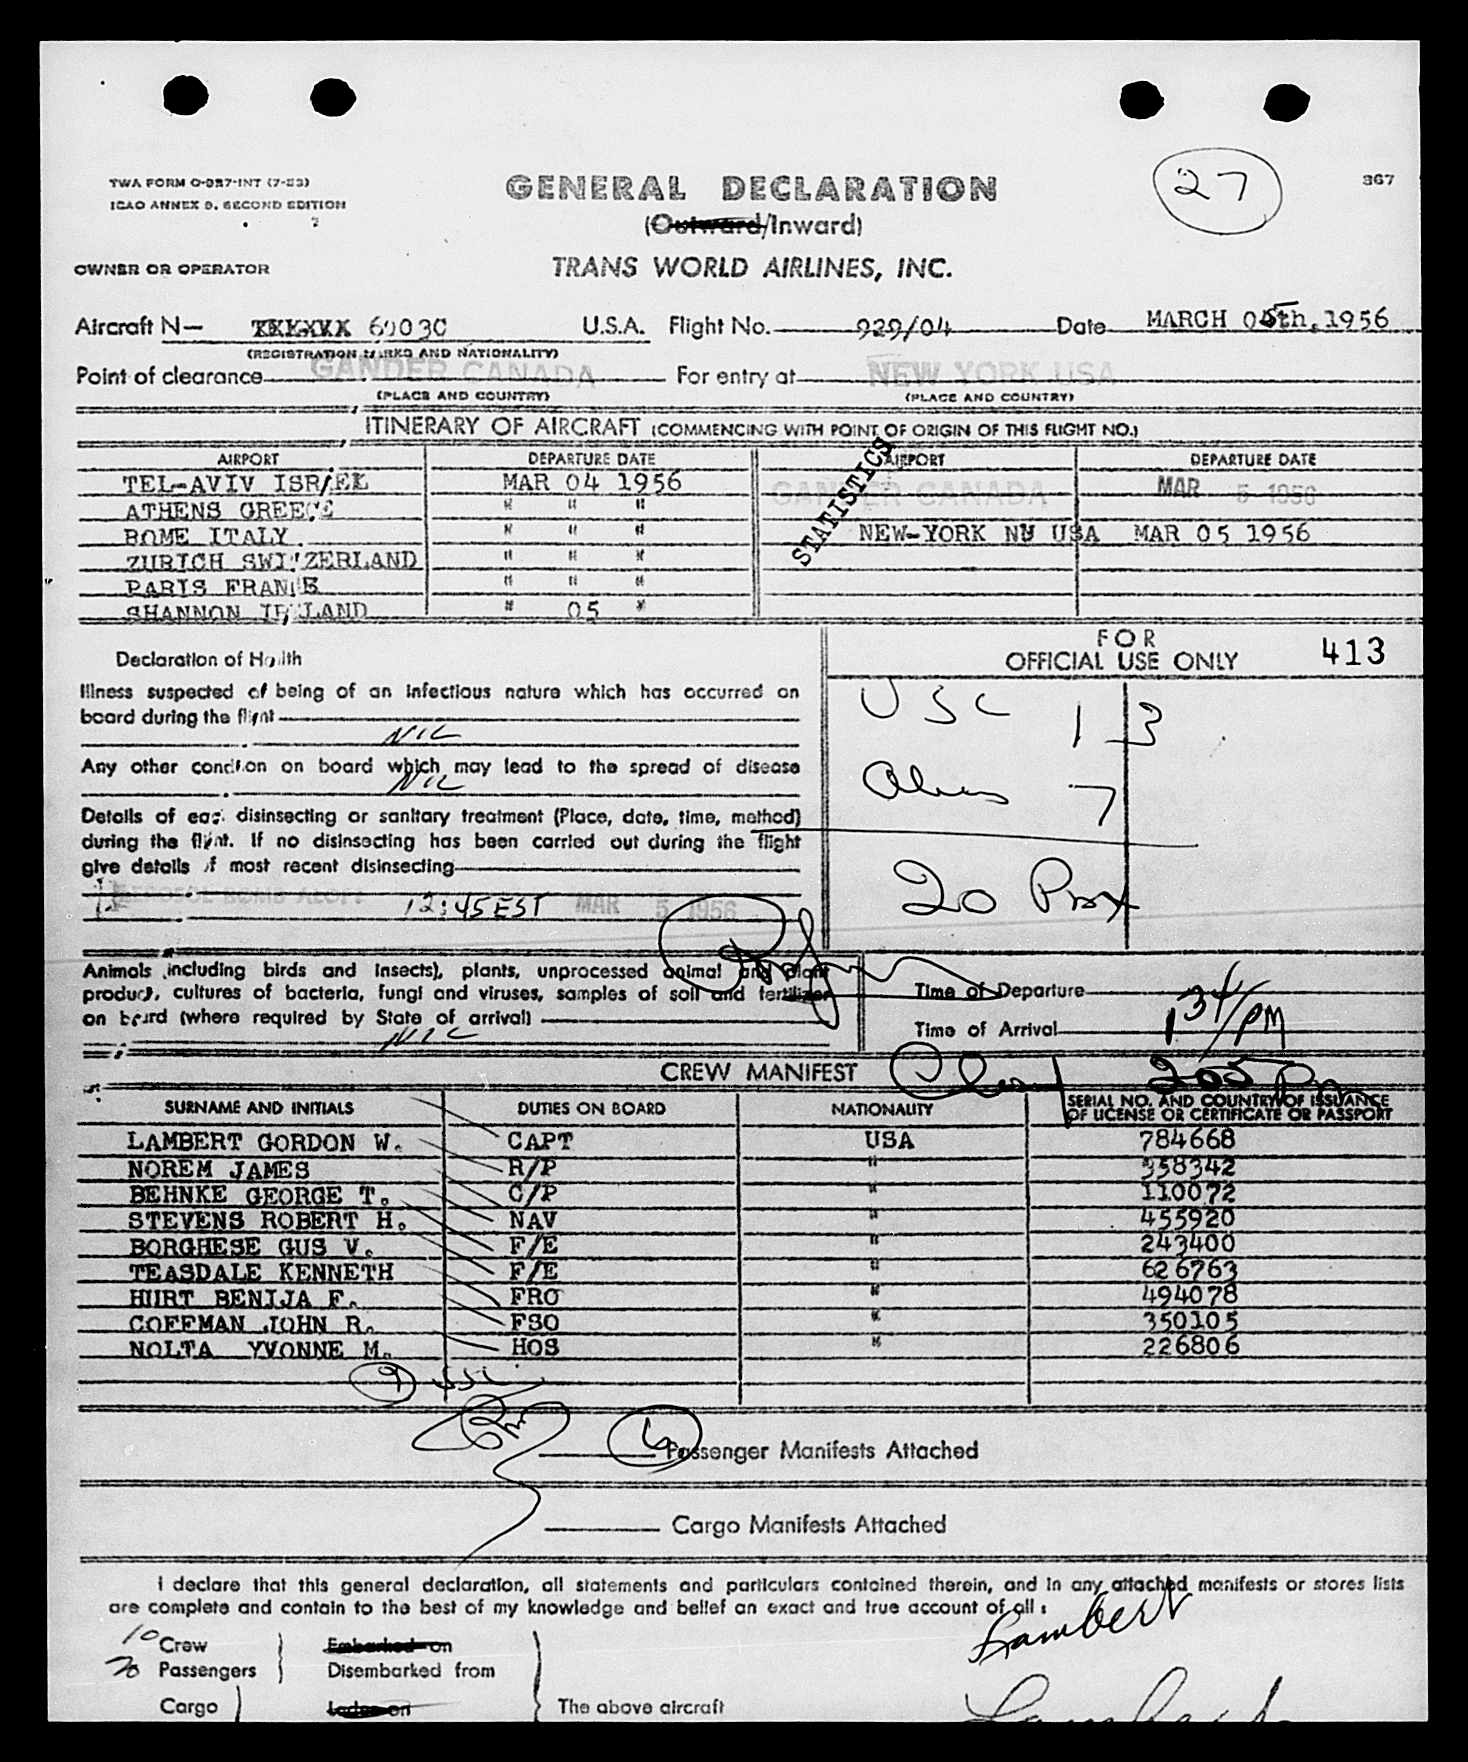 TWA FORM O-927-INT (7-53)
ICAO ANNEX 9, SECOND EDITION
GENERAL DECLARATION
27
367
(Outward/Inward)
OWNER OR OPERATOR
TRANS WORLD AIRLINES, INC.
Aircraft N— 6903C U.S.A. Flight No. 929/04 Date MARCH 05th, 1956
(REGISTRATION MARKS AND NATIONALITY)
Point of clearance GANDER CANADA For entry at NEW YORK USA
(PLACE AND COUNTRY) (PLACE AND COUNTRY)
ITINERARY OF AIRCRAFT (COMMENCING WITH POINT OF ORIGIN OF THIS FLIGHT NO.)
AIRPORT DEPARTURE DATE AIRPORT DEPARTURE DATE
TEL-AVIV ISRAEL MAR 04 1956 GANDER CANADA MAR 5 1956
ATHENS GREECE " " "
STATISTICS
ROME ITALY " " " NEW-YORK NY USA MAR 05 1956
ZURICH SWITZERLAND " " "
PARIS FRANCE " " "
SHANNON IRELAND " 05 "
Declaration of Health
FOR
OFFICIAL USE ONLY 413
Illness suspected of being of an infectious nature which has occurred on
board during the flight
NIL
USC 13
Any other condition on board which may lead to the spread of disease
NIL
Aliens 7
Details of each disinsecting or sanitary treatment (Place, date, time, method)
during the flight. If no disinsecting has been carried out during the flight
give details of most recent disinsecting
20 Pax
AEROSOL BOMB ALOFT 12:45 EST MAR 5 1956
Animals (including birds and insects), plants, unprocessed animal and plant
product, cultures of bacteria, fungi and viruses, samples of soil and fertilizer
on board (where required by State of arrival)
NIL
Time of Departure
Time of Arrival 134/PM
CREW MANIFEST
Cleared 205 Pm
SURNAME AND INITIALS DUTIES ON BOARD NATIONALITY SERIAL NO. AND COUNTRY OF ISSUANCE
OF LICENSE OR CERTIFICATE OR PASSPORT
LAMBERT GORDON W. CAPT USA 784668
NOREM JAMES R/P " 358342
BEHNKE GEORGE T. C/P " 110072
STEVENS ROBERT H. NAV " 455920
BORGHESE GUS V. F/E " 243400
TEASDALE KENNETH F/E " 626763
HURT BENIJA F. FRO " 494078
COFFMAN JOHN R. FSO " 350105
NOLTA YVONNE M. HOS " 226806
9 USC
6 Passenger Manifests Attached
Cargo Manifests Attached
I declare that this general declaration, all statements and particulars contained therein, and in any attached manifests or stores lists
are complete and contain to the best of my knowledge and belief an exact and true account of all:
Lambert
10 Crew Embarked on
20 Passengers Disembarked from
Cargo Laden on The above aircraft
Lambert